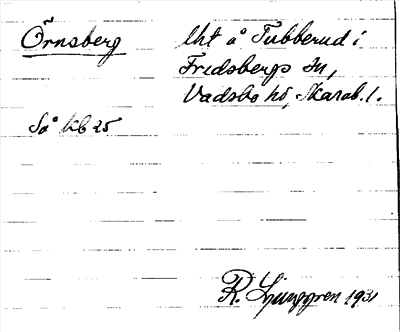 Örnsberg
Lht å Tubberud i
Fredsbergs sn,
Vadsbo hd, Skarab. l.
Så kb 25
R. Ljunggren 1931